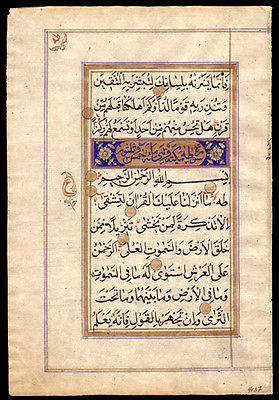 فَإِنَّمَا يَسَّرْنَاهُ بِلِسَانِكَ لِتُبَشِّرَ بِهِ الْمُتَّقِينَ
وَتُنْذِرَ بِهِ قَوْمًا لُدًّا وَكَمْ أَهْلَكْنَا قَبْلَهُمْ مِنْ
قَرْنٍ هَلْ تُحِسُّ مِنْهُمْ مِنْ أَحَدٍ أَوْ تَسْمَعُ لَهُمْ رِكْزًا
بِسْمِ اللَّهِ الرَّحْمَنِ الرَّحِيمِ
طه مَا أَنْزَلْنَا عَلَيْكَ الْقُرْآنَ لِتَشْقَى
إِلَّا تَذْكِرَةً لِمَنْ يَخْشَى تَنْزِيلًا مِمَّنْ
خَلَقَ الْأَرْضَ وَالسَّمَوَاتِ الْعُلَى الرَّحْمَنُ
عَلَى الْعَرْشِ اسْتَوَى لَهُ مَا فِي السَّمَوَاتِ
وَمَا فِي الْأَرْضِ وَمَا بَيْنَهُمَا وَمَا تَحْتَ
الثَّرَى وَإِنْ تَجْهَرْ بِالْقَوْلِ فَإِنَّهُ يَعْلَمُ